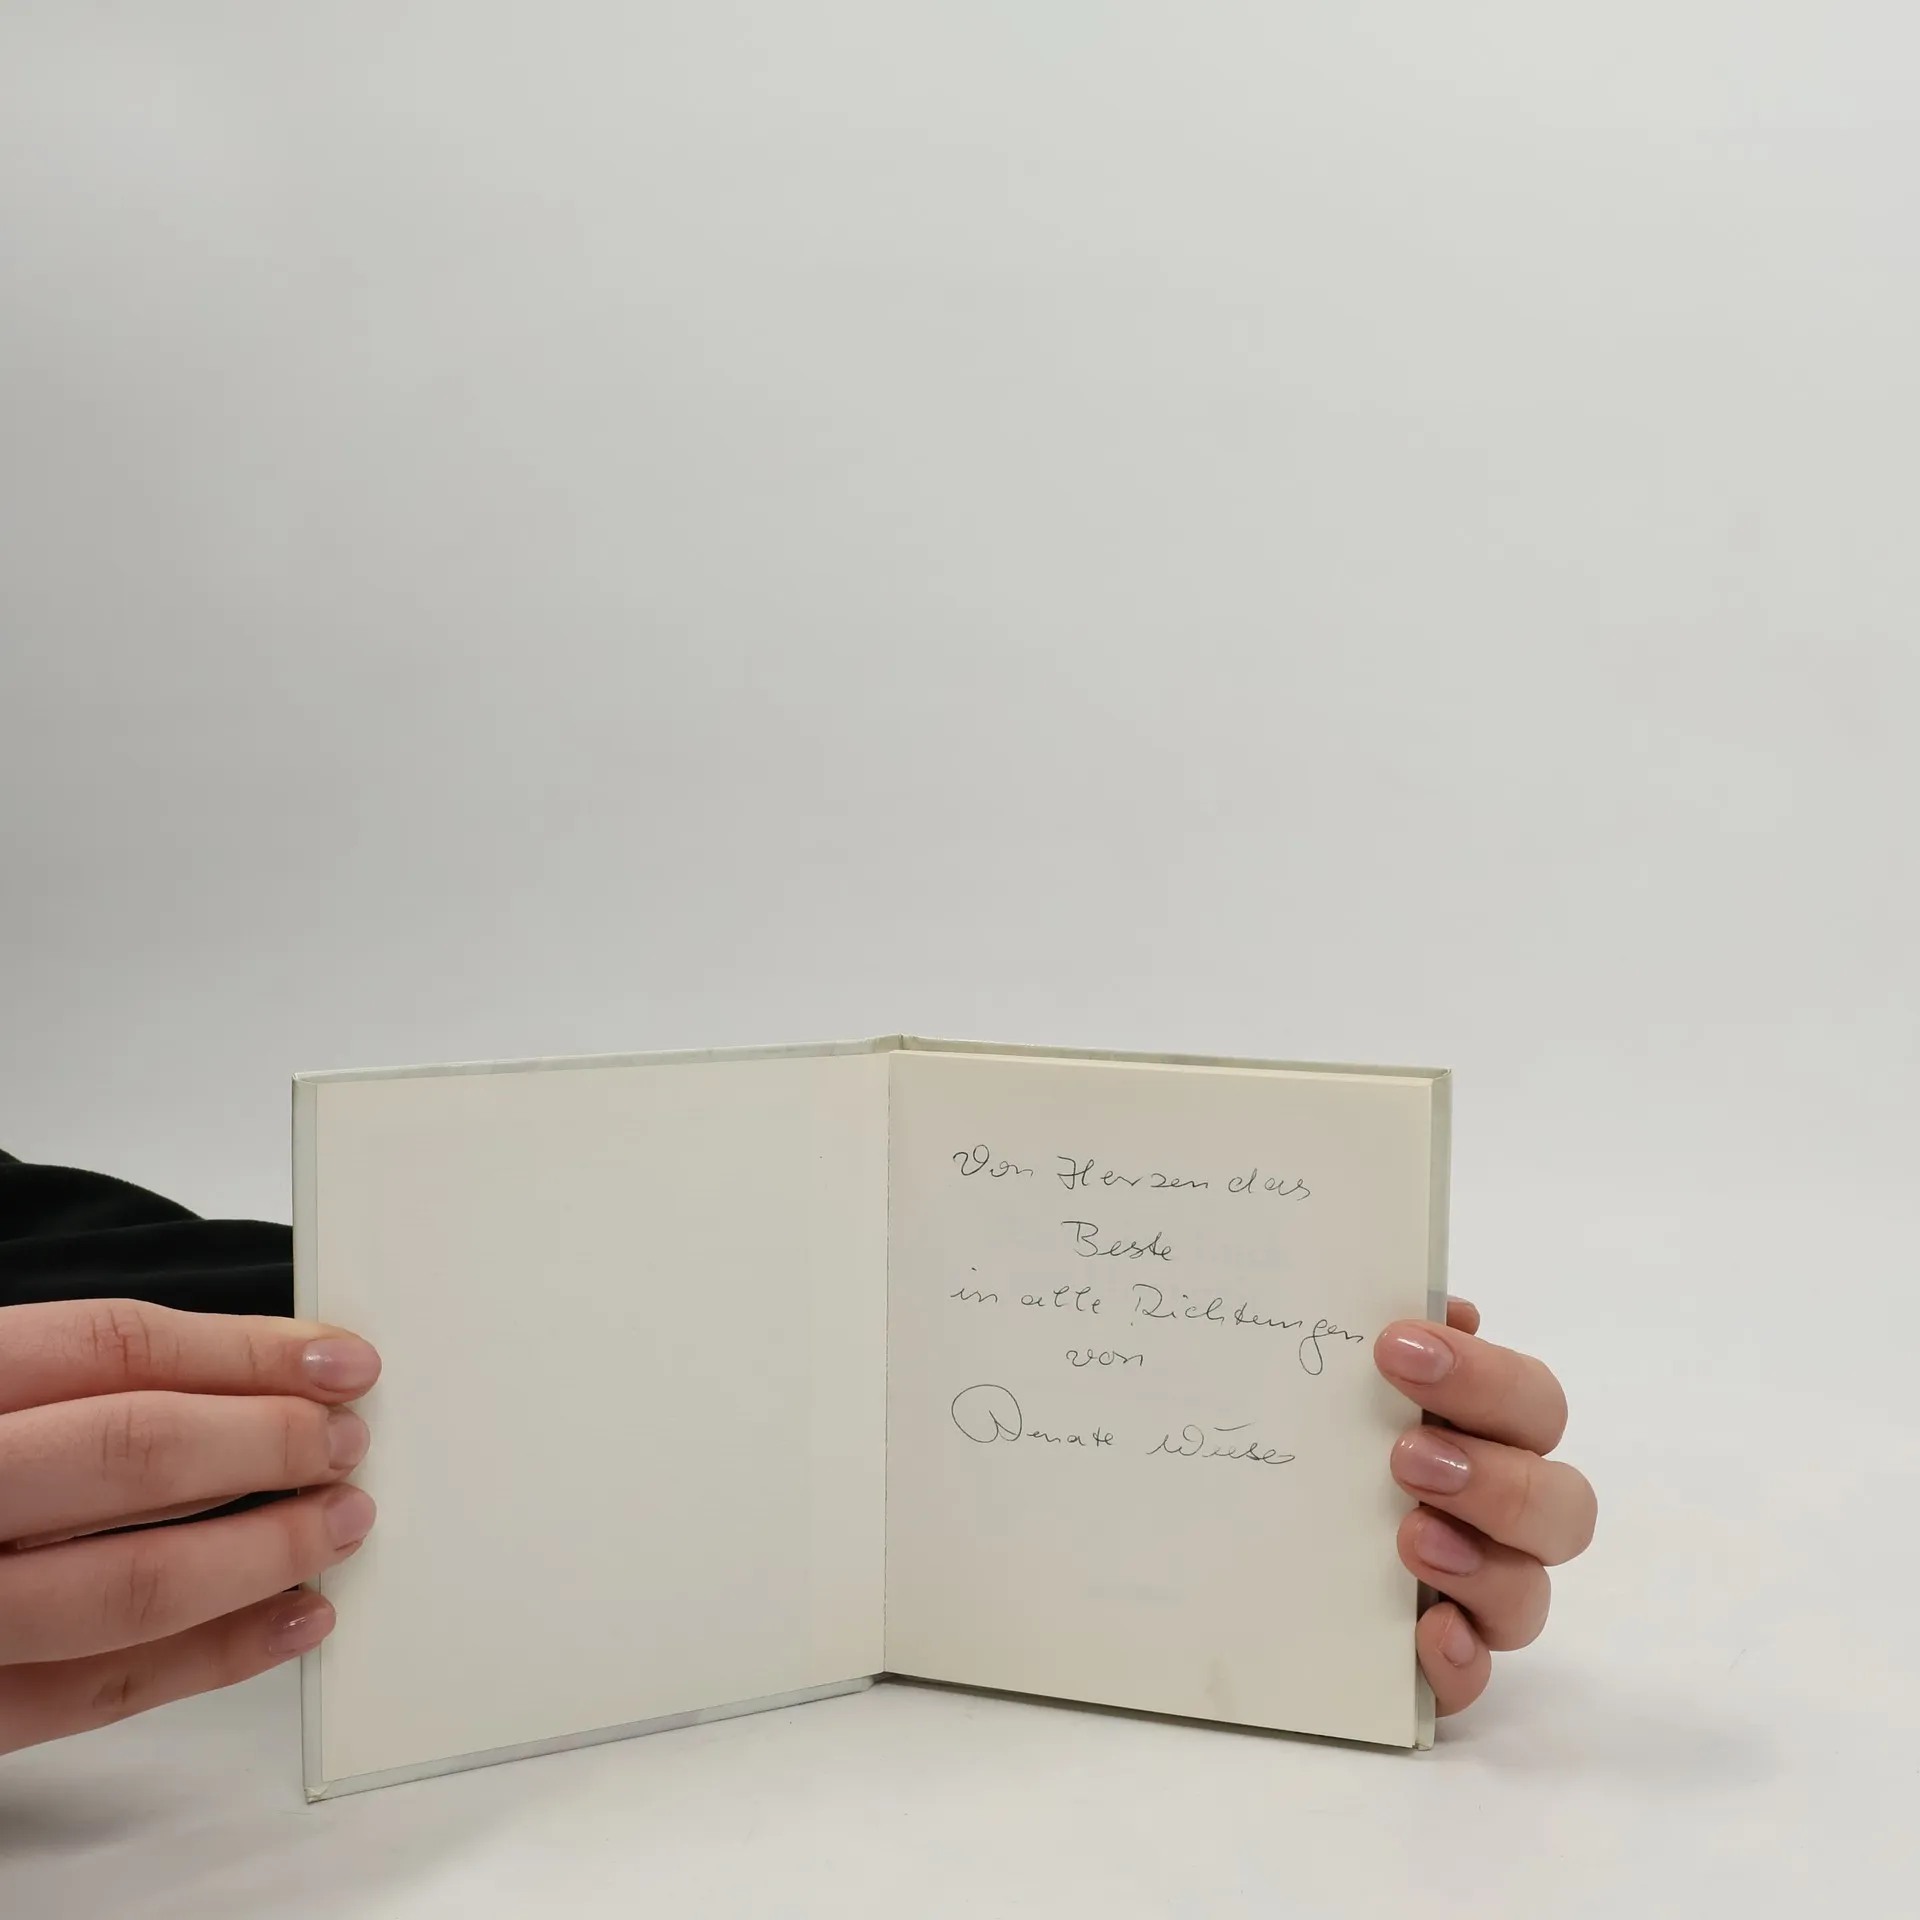 Von Herzen das
Beste
in alle Richtungen
von
Renate Wiese